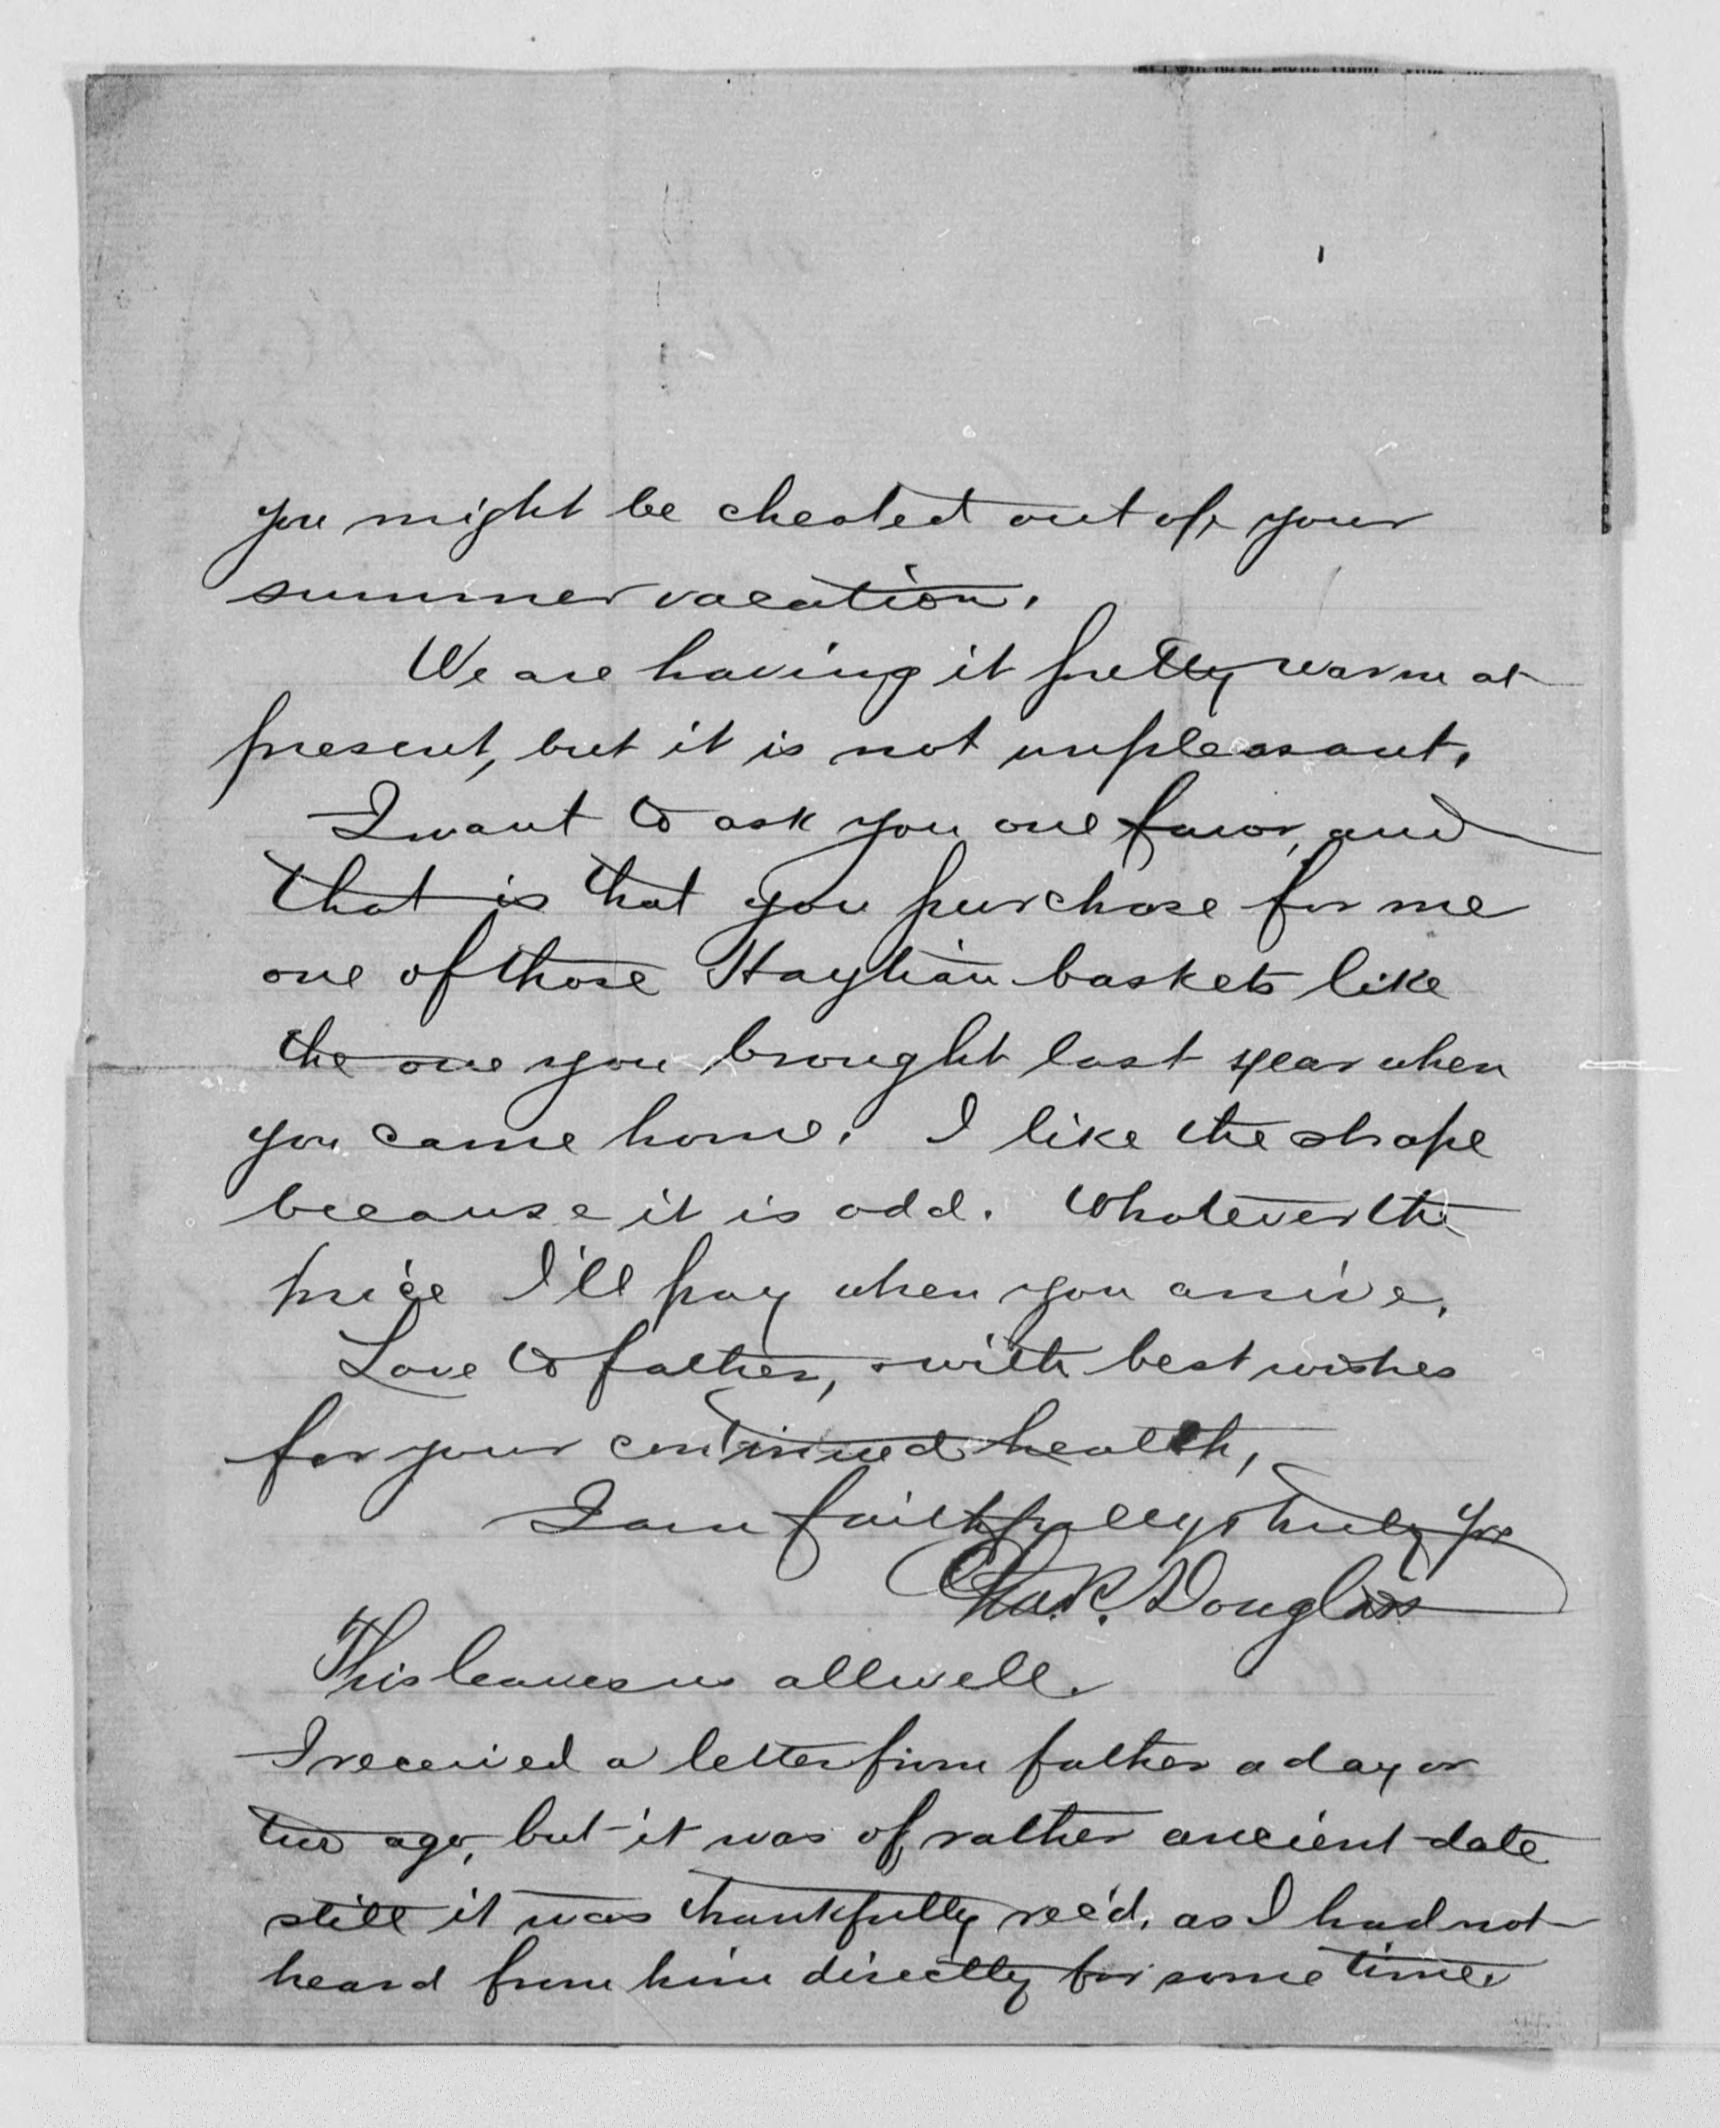 you might be cheated out of your
summer vacation.
We are having it pretty warm at
present, but it is not unpleasant.
I want to ask you one favor, and
that is that you purchase for me
one of those Haytian baskets like
the one you brought last year when
you came home. I like the shape
because it is odd. Whatever the
price I'll pay when you arrive.
Love to father, with best wishes
for your continued health,
I am faithfully & truly yrs
Chas. R. Douglass
This leaves us all well.
I received a letter from father a day or
two ago, but it was of rather ancient date
still it was thankfully rec'd. as I had not
heard from him directly for some time.